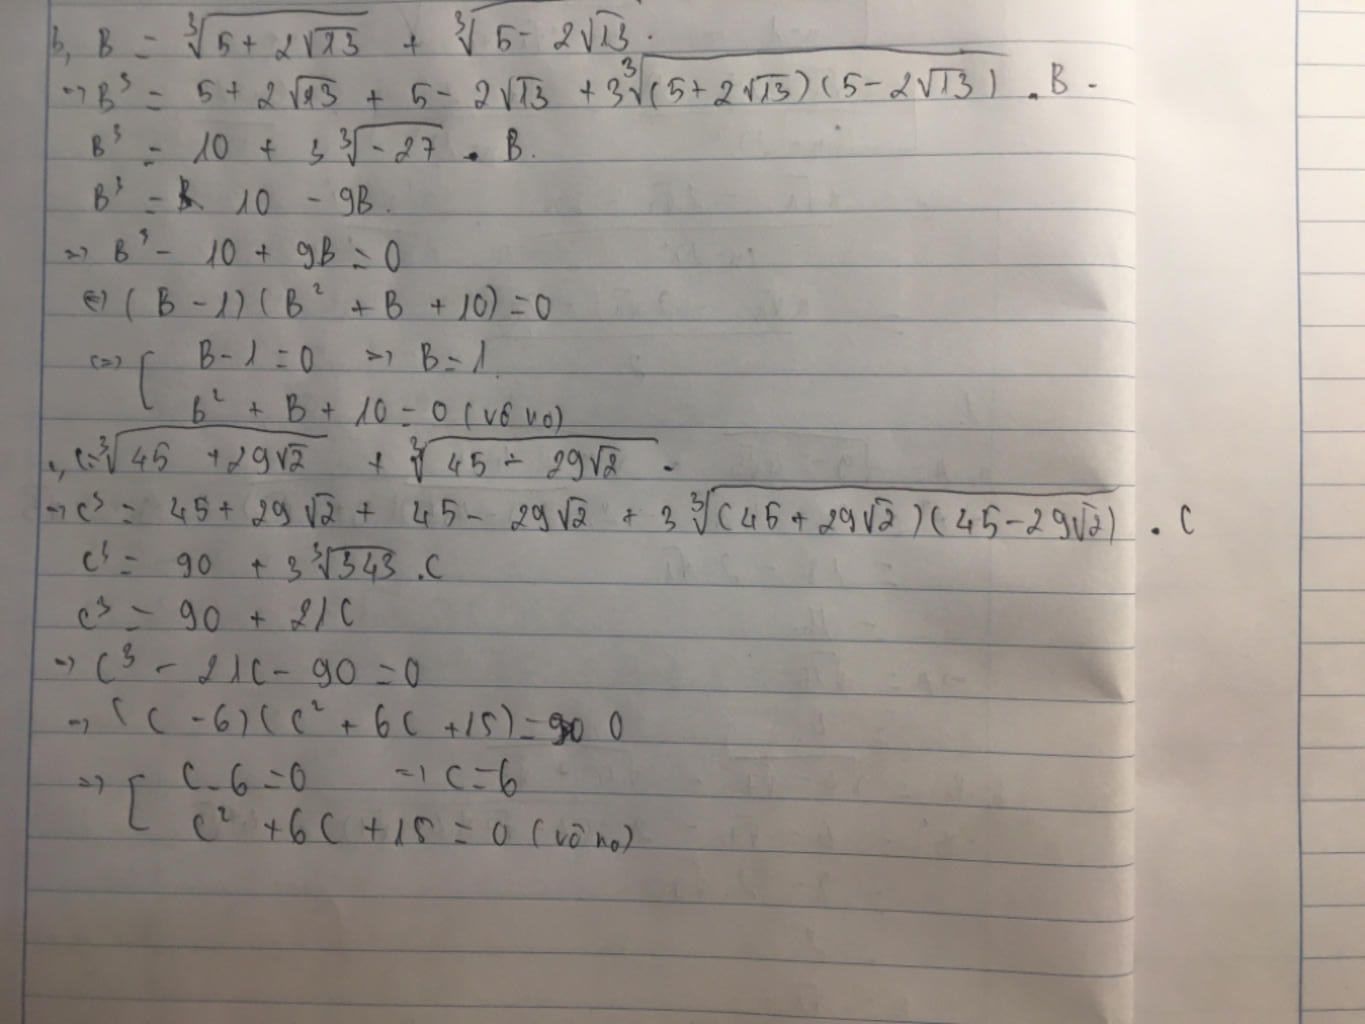 b, B = ∛(5 + 2√13) + ∛(5 - 2√13).
=> B³ = 5 + 2√13 + 5 - 2√13 + 3∛((5 + 2√13)(5 - 2√13)) . B.
B³ = 10 + 3∛(-27) . B.
B³ = 10 - 9B.
=> B³ - 10 + 9B = 0
<=> (B - 1)(B² + B + 10) = 0
<=> [ B - 1 = 0 => B = 1
B² + B + 10 = 0 (vô no)
c, C = ∛(45 + 29√2) + ∛(45 - 29√2).
=> C³ = 45 + 29√2 + 45 - 29√2 + 3∛((45 + 29√2)(45 - 29√2)) . C
C³ = 90 + 3∛343 . C
C³ = 90 + 21C
=> C³ - 21C - 90 = 0
=> (C - 6)(C² + 6C + 15) = 0
=> [ C - 6 = 0 => C = 6
C² + 6C + 15 = 0 (vô no)